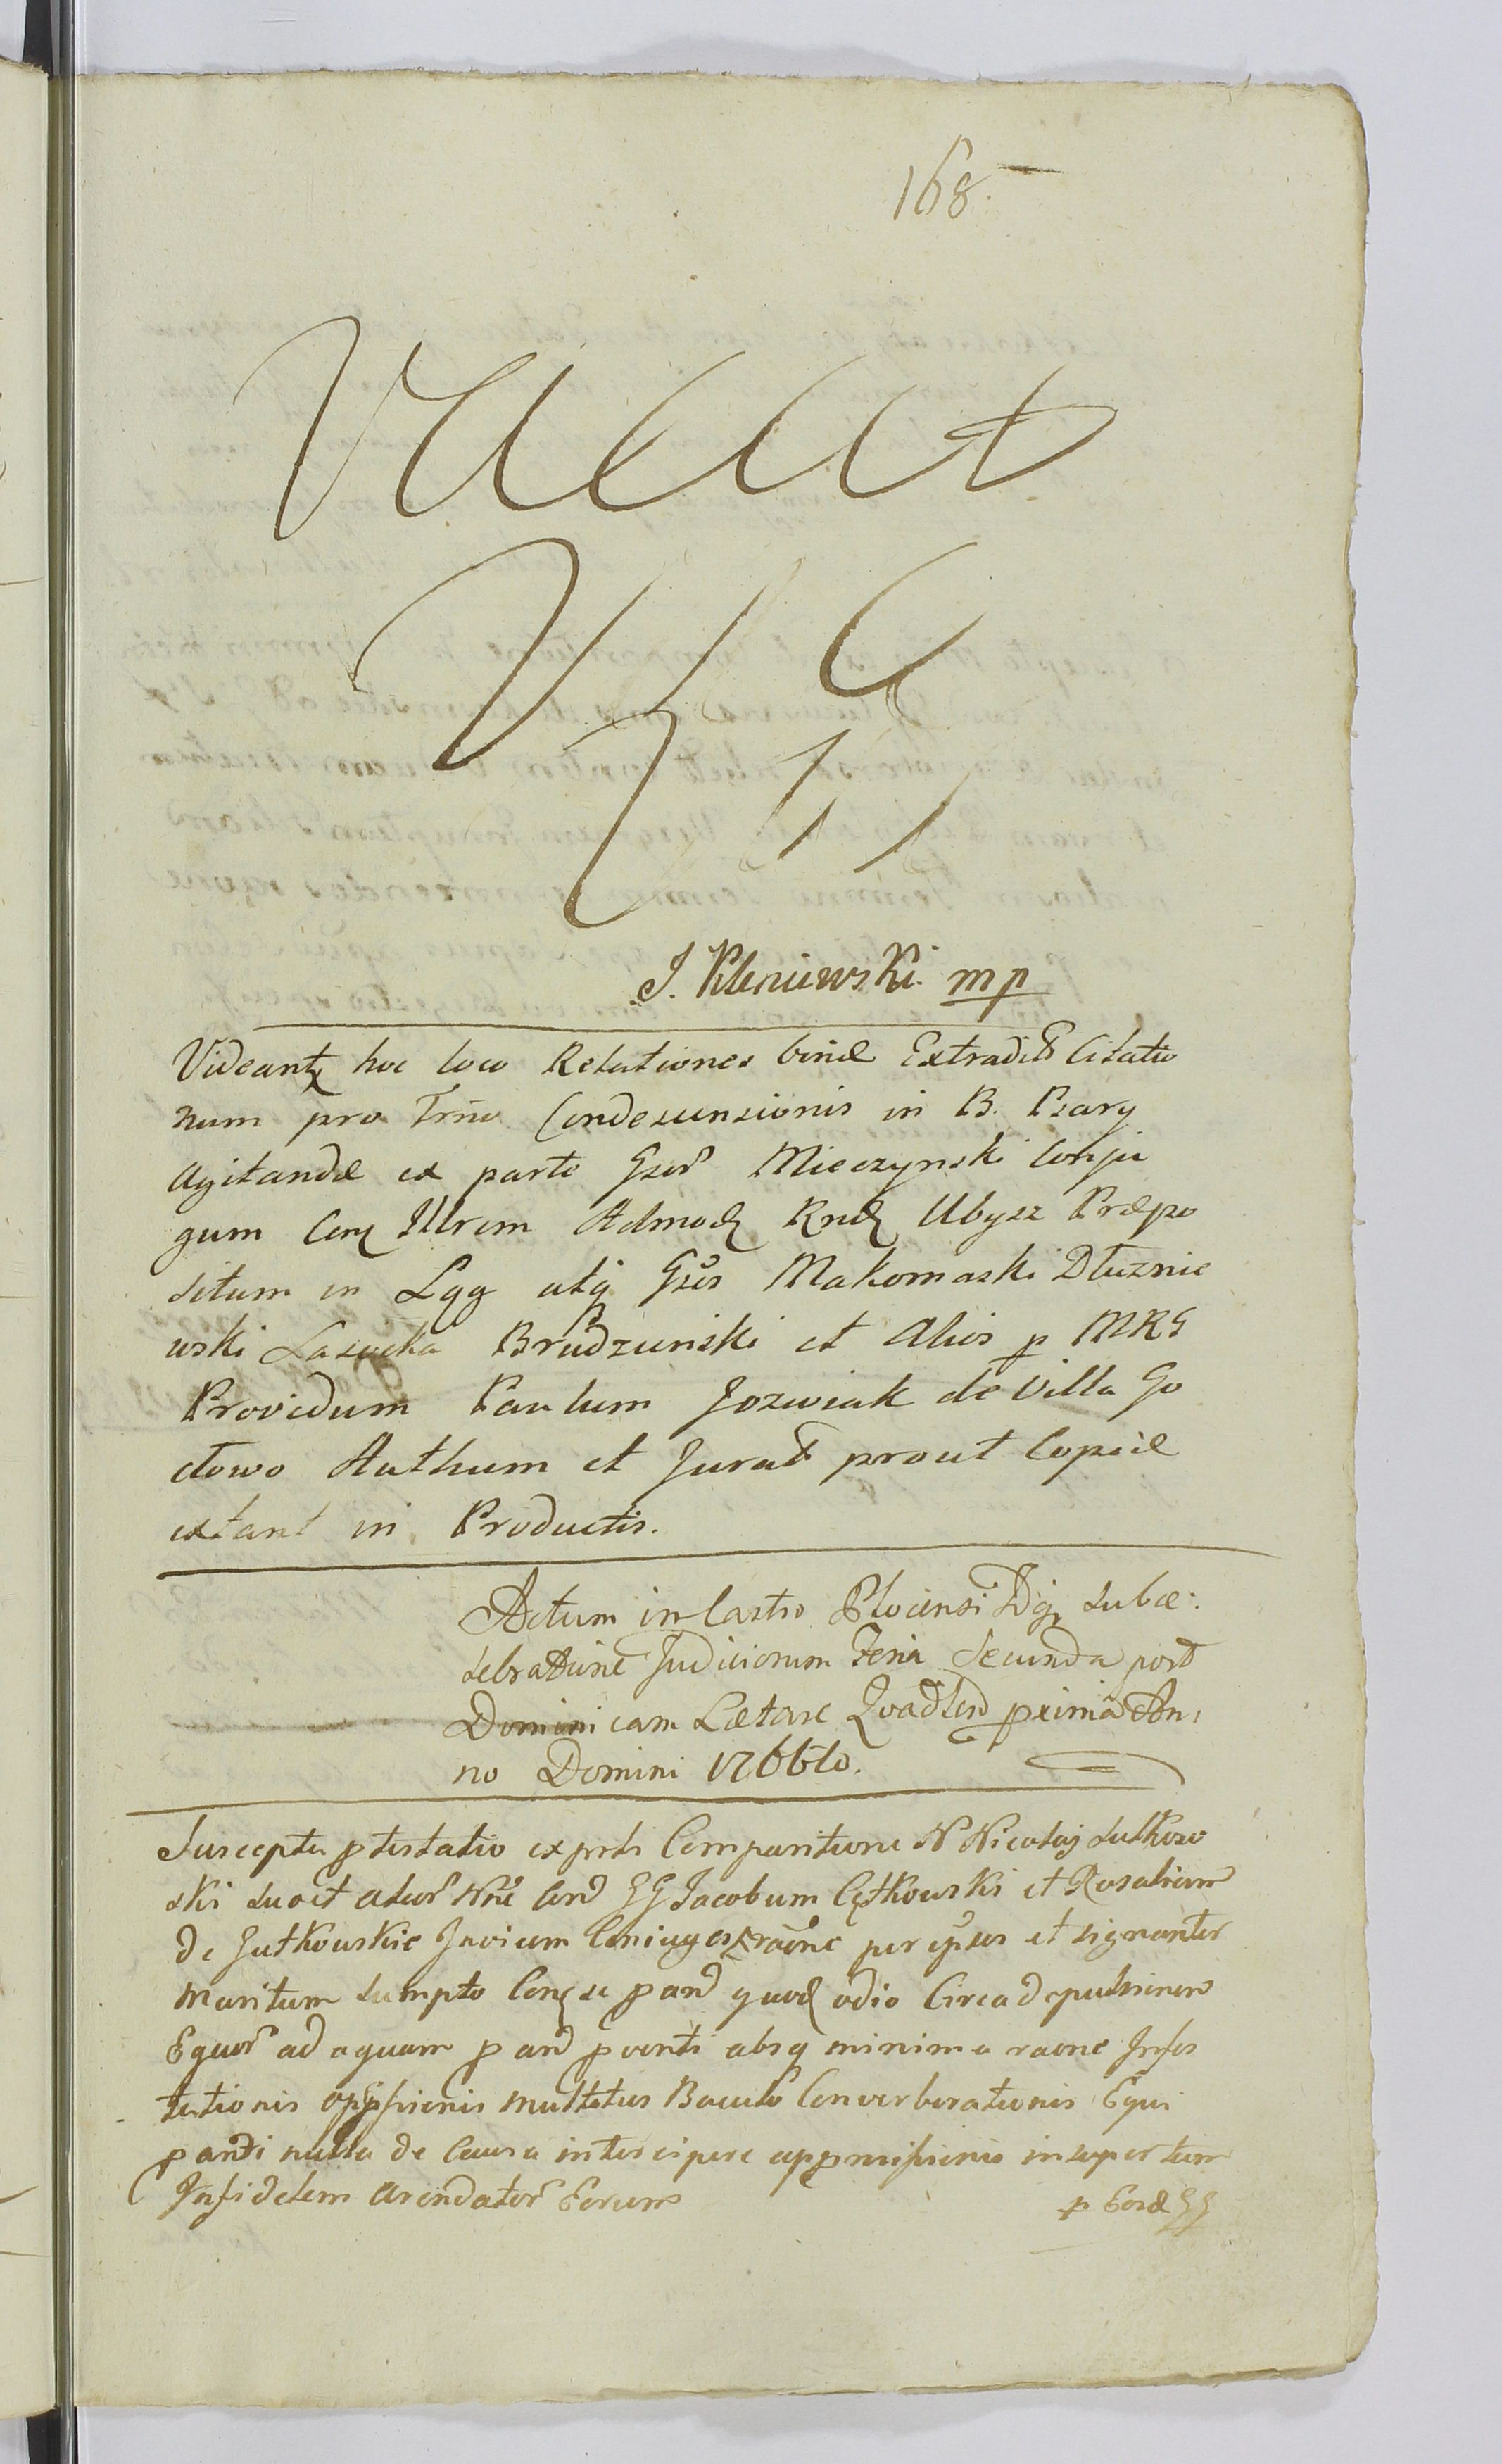 168.
Vacat
J. Kleniewski. mp
Videant hoc loco Relationes binæ Extradit Citatio
num pro Trno Condescensionis in B. Psary
Agitandæ ex parte Gsor Mieczynski Conju
gum Con Illrem Admod Rnd Ubysz Præpo
situm in Lgg atq Gsos Makomaski Dłuznie
wski Lasocka Brudzunski et Alios p MRG
Providum Paulum Jozwiak de Villa Go
ctowo Authum et Jurat prout Copiæ
extant in Productis.
Actum in Castro Plocensi Dq sub ce:
lebratione Judiciorum Feria Secunda post
Dominicam Lætare Qvadlem pximâ An:
no Domini 1766to.
Suscepta ptestatio ex prte Comparitione N Nicolaj Lutkow
ski suo et ator Nne Cord GG Jacobum Cętkowski et Rosaliam
de Jutkowskie Invicem Coniuges raone per ipsos et signanter
Maritum sumpto Conq se pand quod odio Circa depulsionem
Equor ad aquam p and pventi absq minima raone Infes
tationis oppssionis multitus Baculo Converberationis Equi
pandi nulla de Causa intercipere appromissionis insuper tum
Infidelem Arendator Eorum p Eosd GG